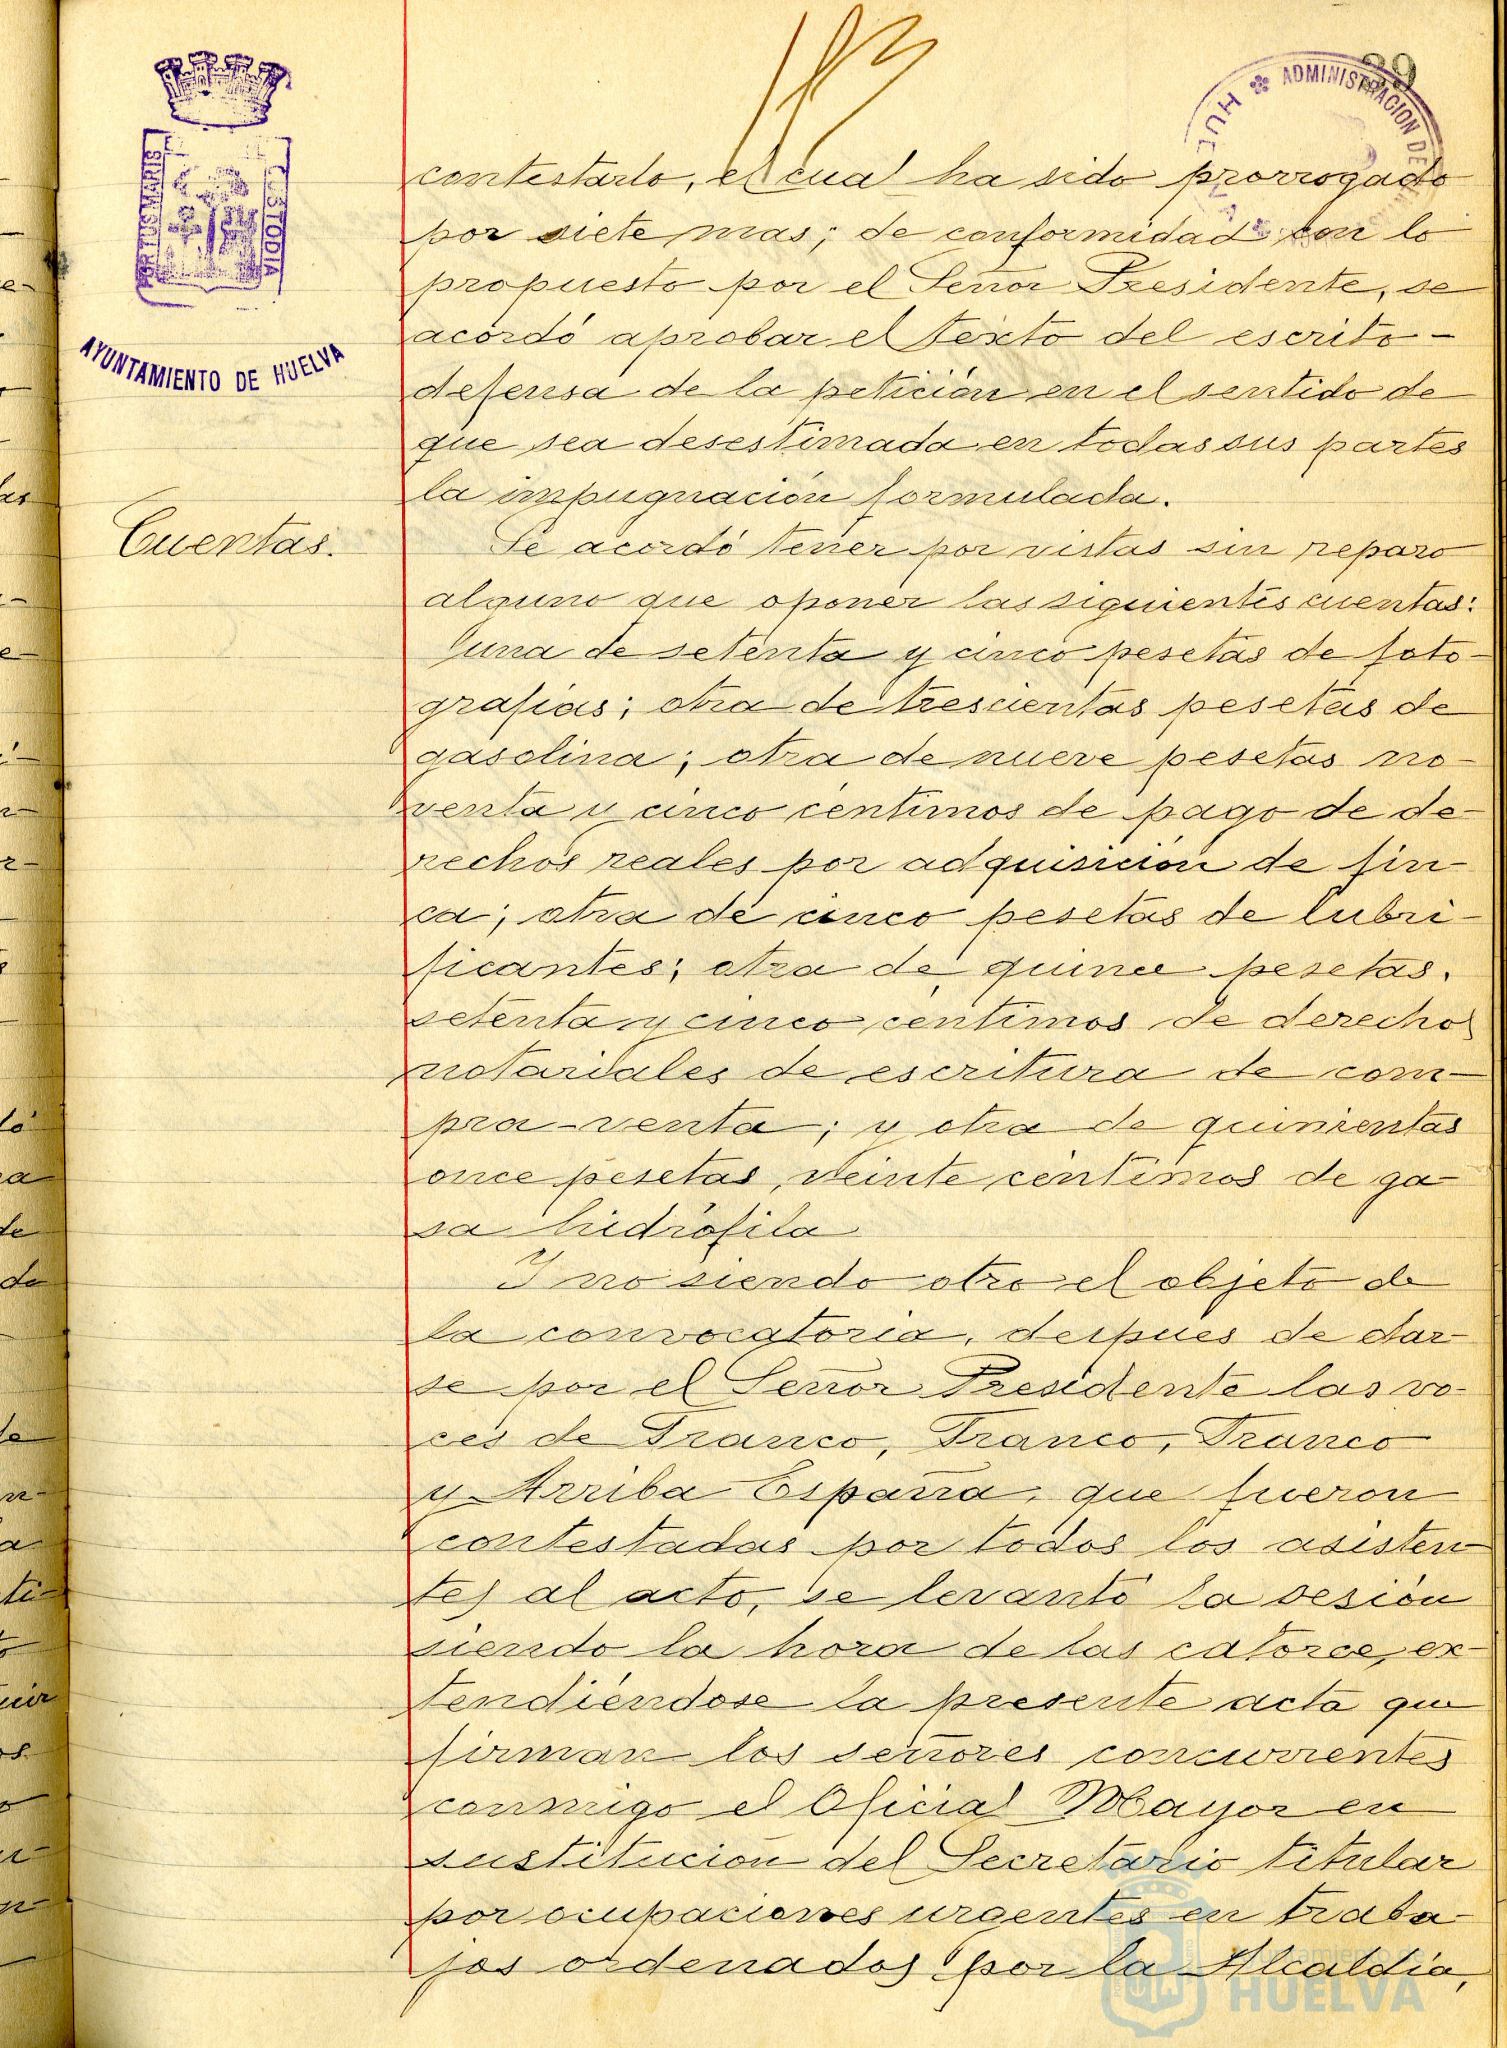 39
ADMINISTRACION DE
HUELVA
PORTUS MARIS
CUSTODIA
AYUNTAMIENTO DE HUELVA
contestarlo, el cual ha sido prorrogado
por siete mas; de conformidad con lo
propuesto por el Señor Presidente, se
acordó aprobar el texto del escrito -
defensa de la petición en el sentido de
que sea desestimada en todas sus partes
la impugnación formulada.
Cuentas.
Se acordó tener por vistas sin reparo
alguno que oponer las siguientes cuentas:
una de setenta y cinco pesetas de foto-
grafias; otra de trescientas pesetas de
gasolina; otra de nueve pesetas no-
venta y cinco centimos de pago de de-
rechos reales por adquisición de fin-
ca; otra de cinco pesetas de lubri-
ficantes; otra de quince pesetas,
setenta y cinco centimos de derechos
notariales de escritura de com-
pra-venta; y otra de quinientas
once pesetas, veinte centimos de ga-
sa hidrófila
Y no siendo otro el objeto de
la convocatoria, despues de dar-
se por el Señor Presidente las vo-
ces de Franco, Franco, Franco
y Arriba España, que fueron
contestadas por todos los asisten-
tes al acto, se levantó la sesión
siendo la hora de las catorce, ex-
tendiéndose la presente acta que
firman los señores concurrentes
conmigo el Oficial Mayor en
sustitución del Secretario titular
por ocupaciones urgentes en traba-
jos ordenados por la Alcaldía,
Ayuntamiento de
HUELVA